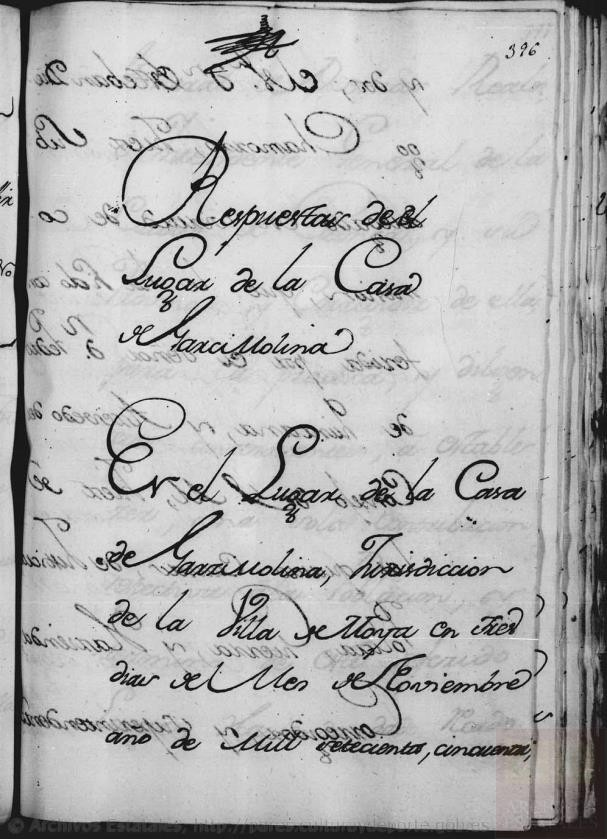 396
Respuestas de el
Lugar de la Casa
de Garzimolina
En el Lugar de la Casa
de Garzimolina, Jurisdiccion
de la Villa de Moya en tres
dias de el Mes de Noviembre
año de Mill setecientos, cinquenta,
© Archivos Estatales, http://pares.culturaydeporte.gob.es